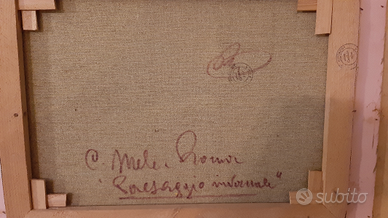 C. Mele. Roma
"Paesaggio invernale"
subito